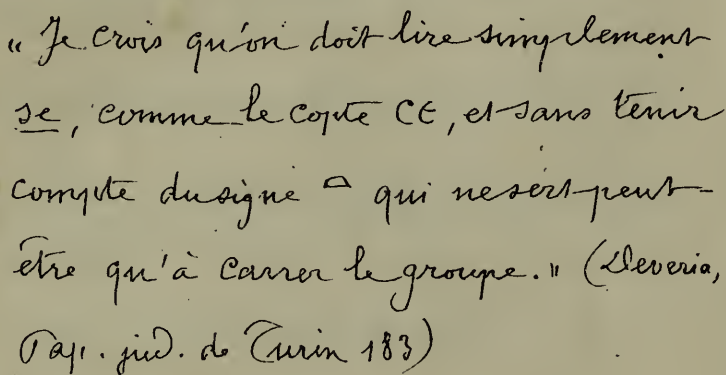 « Je crois qu'on doit lire simplement
se, comme le copte ⲤⲈ, et sans tenir
compte du signe ⌓ qui ne sert peut-
être qu'à carrer le groupe. » (Deveria,
Pap. jud. de Turin 183)